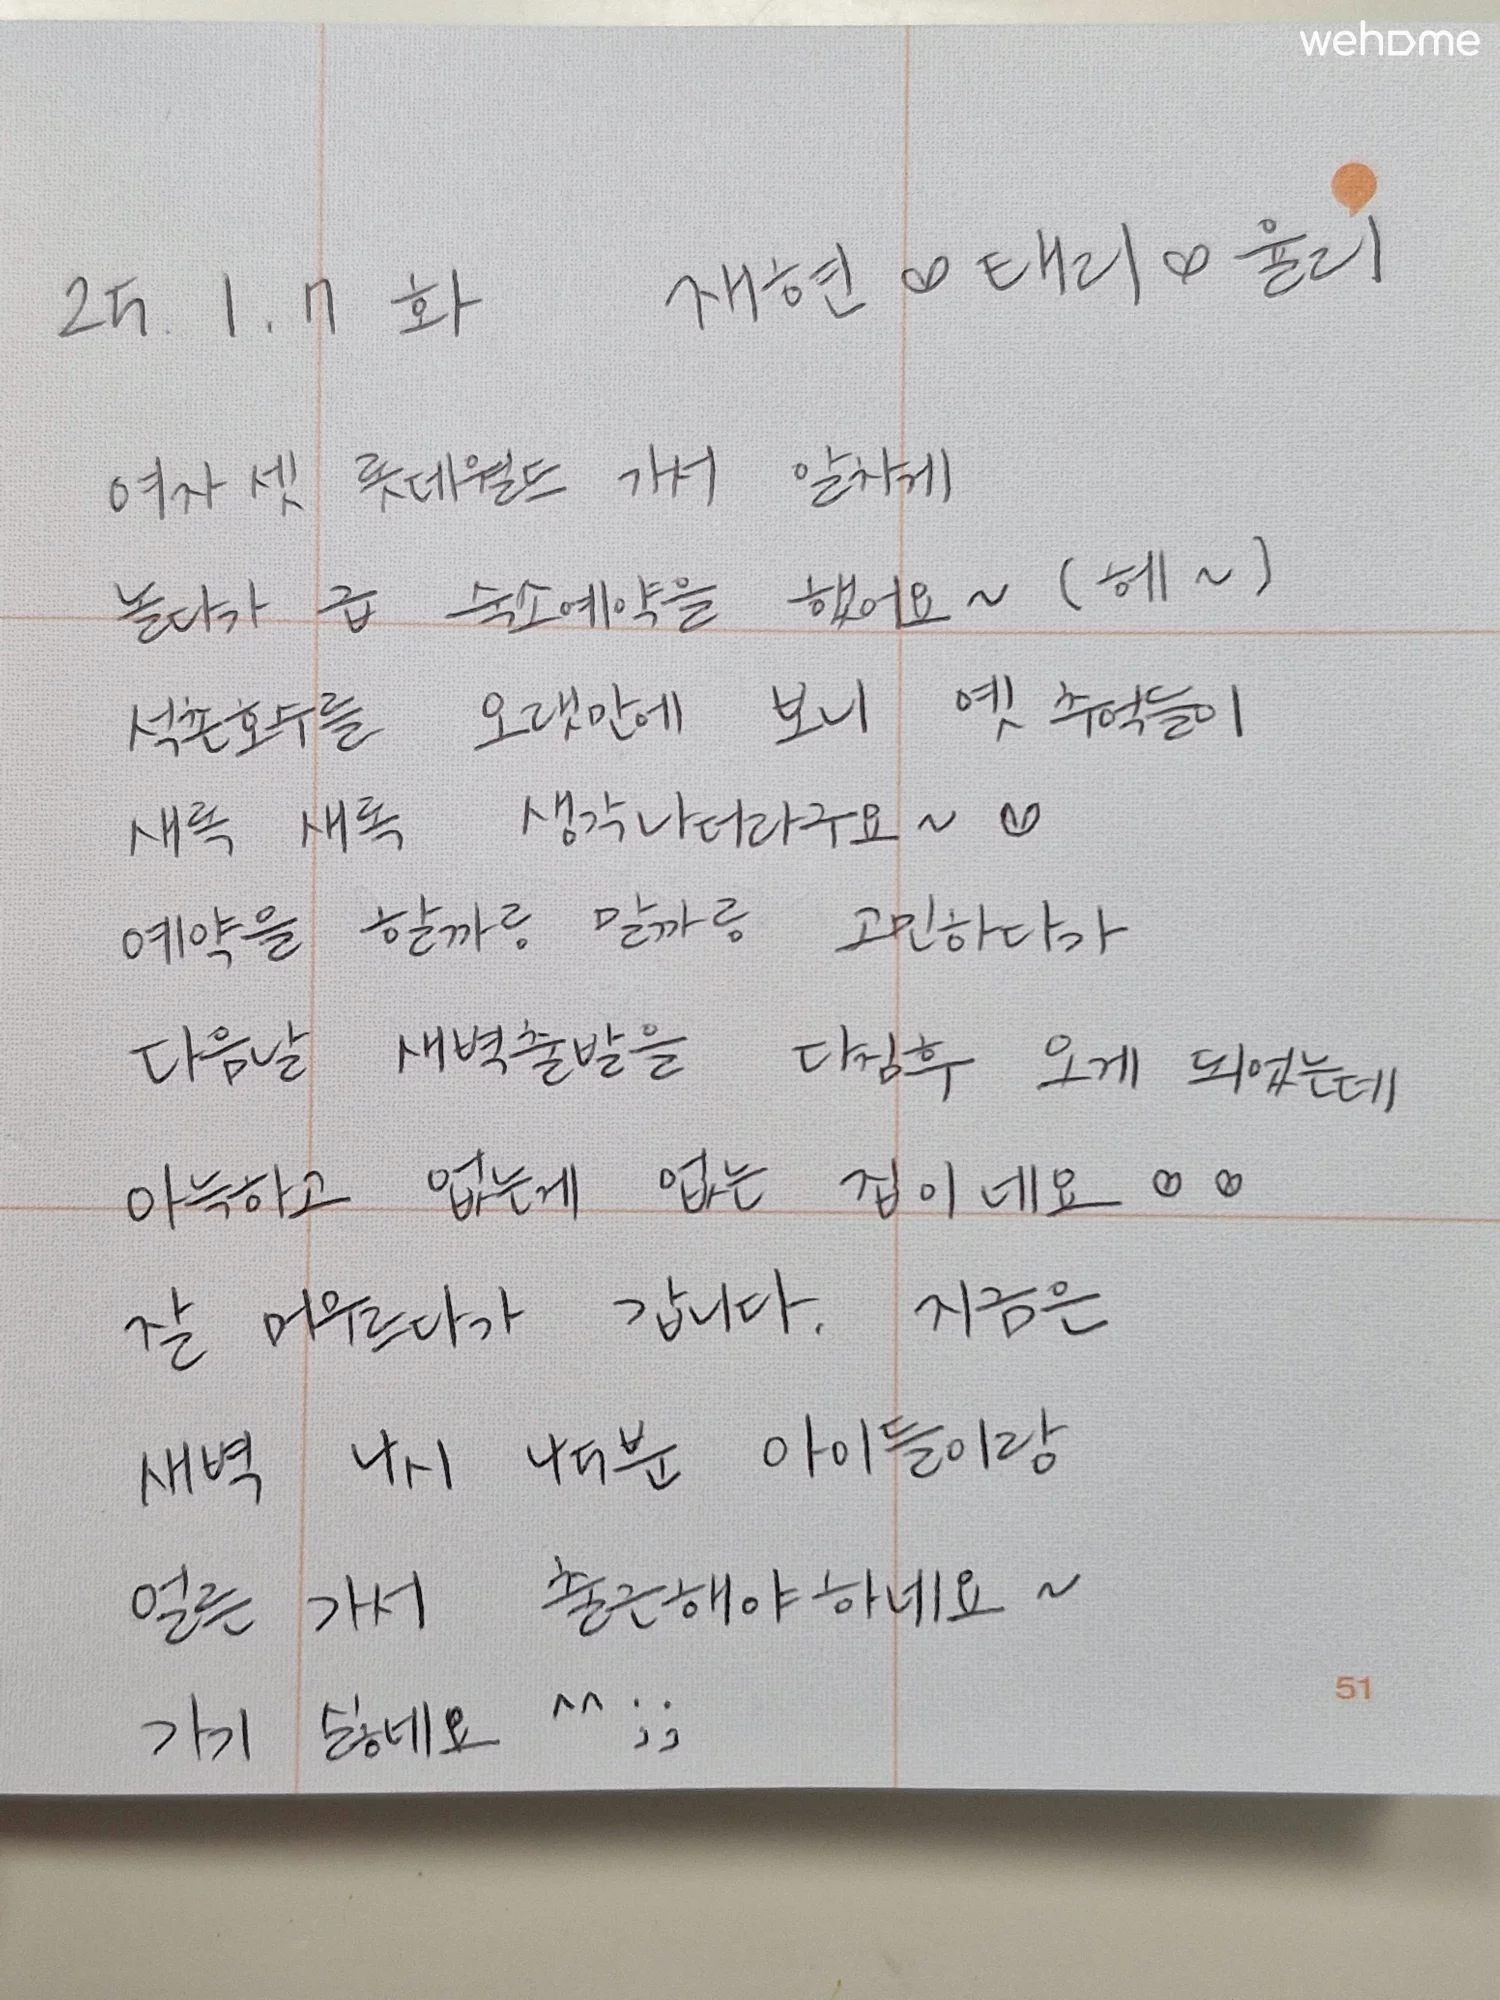 wehome
25. 1. 7 화 재현♡태리♡율리
여자셋 롯데월드 가서 알차게
놀다가 급 숙소예약을 했어요~ (헤~)
석촌호수를 오랫만에 보니 옛 추억들이
새록 새록 생각나더라구요~♡
예약을 할까룽 말까룽 고민하다가
다음날 새벽출발을 다짐후 오게 되었는데
아늑하고 없는게 없는 집이네요♡♡
잘 머무르다가 갑니다. 지금은
새벽 4시 45분 아이들이랑
얼른 가서 출근해야하네요~
가기 싫네요 ^^;;
51